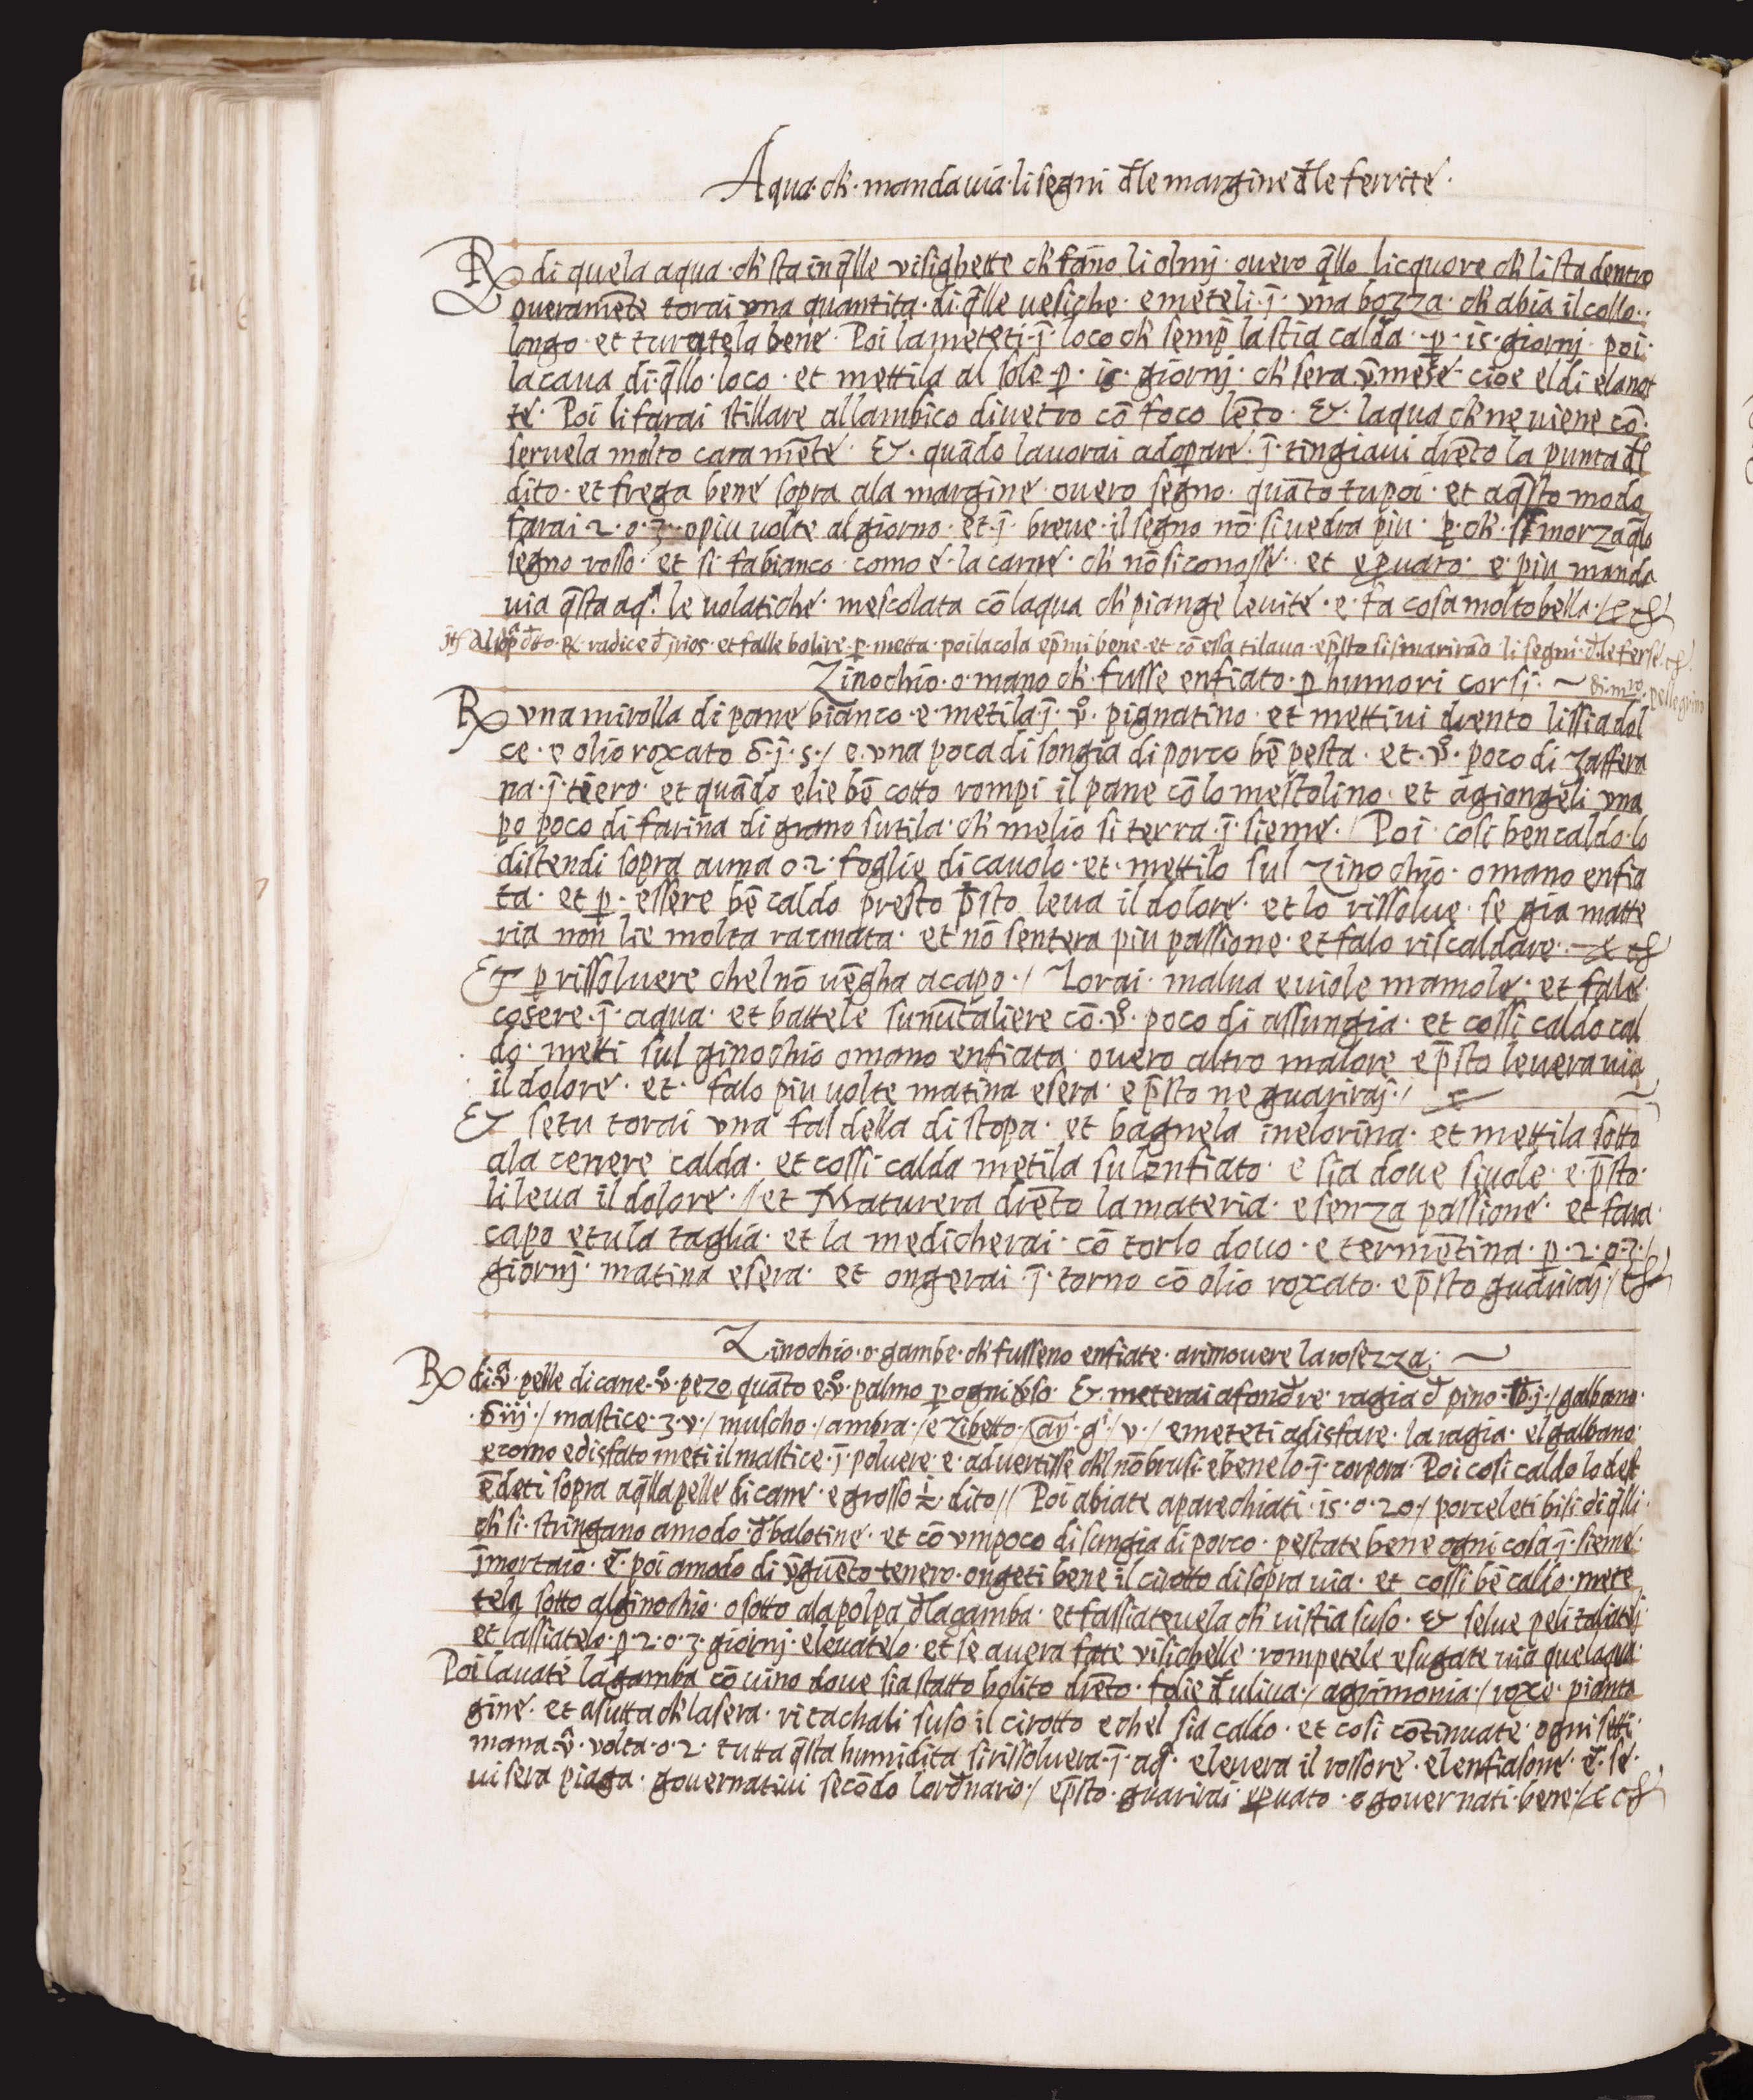 Aqua · ch' · manda uia · li segni d̄le margine d̄le ferrite ·
℞ di quela aqua · ch' sta in q̄lle visighette ch' fāno li olmj · ouero q̄llo licquore ch' li sta dentro
oueramēte torai vna quantita · di · q̄lle uesiche · e meteli · j̄ · vna bozza · ch' abia il collo ·
longo · et turatela bene · Poi la meteti · j̄ · loco ch' semp̄ la stia calda · p̱ · 15 · giornj · poi ·
la caua di · q̄llo · loco · et mettila al sole · p̱ · 15 · giornj · ch' sera · v̄ mese · cioe el di e la not
te · Poi li farai stillare allambico di uetro cō foco lēto · Et · laqua ch' ne uiene cō ·
seruela molto cara mēte · Et · quādo la uorai adoprare · j̄ · tingiaui drēto la punta d̄l
dito · et frega bene sopra ala margine · ouero segno · quāto tu poi · et a q̄sto modo
farai 2 · o · 3 · o piu uolte al giorno · et · j̄ · breue · il segno nō · si uedra piu · p̱ · ch' · si smorza q̄lo
segno rosso · et si fa bianco · como e · la carne · ch' nō si conosse · et e p̱uato · e · piu manda
uia q̄sta aq.ª le uolatiche · mescolata cō laqua ch' piange le uite · e · fa cosa molto bella ·/
radice d̄ jrios · et falle bolire · p̱ · metta · poi la cola ep̄mi bene · et cō essa ti laua · e p̄sto si smarirāo li segni · d̄ le ferse ·
Zinochio · o · mano ch' · fusse enfiato · p̱ humori corsi · ~ di · m.ro · pellegrino
℞ vna mirolla di pane bianco · e · metila · j̄ · v̊ · pignatino · et mettiui drento lissia dol
ce · e olio roxato · j̄ · s ·/ e · vna poca di songia di porco bē pesta · et · v̊ · poco di zaffera
na · j̄ · tēero · et quādo elie bē cotto rompi il pane cō lo mestolino · et agiongeli vna
po poco di farina di grano sutila · ch' melio si terra · j̄ · sieme ·/ Poi · cosi ben caldo · lo
distendi sopra a una o · 2 · foglie di cauolo · et · mettilo sul zinochio · o mano enfia
ta · et p̱ · essere bē caldo presto p̄sto leua il dolore · et lo rissolue · se gia matte
ria non lie molta raunata · et nō sentera piu passione · et falo riscaldare ·
Et p̱ rissoluere chel nō uēgha a capo ·/ Torai · malua e uiole mamole · et fale ·
cosere · j̄ · aqua · et battele su nū taliere cō · v̊ · poco di assungia · et cossi caldo cal
do · metti sul ginochio o mano enfiata · ouero altro malore e p̄sto leuera uia
il dolore · et · falo piu uolte matina e sera · e p̄sto ne guariraj ·/
Et se tu torai vna faldella di stopa · et bagnela in elorina · et mettila sotto
ala cenere calda · et cossi calda metila sul enfiato · e sia doue si uole · e · p̄sto ·
li leua il dolore ·/ et Maturera drēto la materia · e senza passione · et fara ·
capo e tu la taglia · et la medicherai · cō torlo douo · e termētina · p̱ · 2 · o · 3 ·/
giornj · matina e sera · et ongerai · j̄ · torno cō olio roxato · e p̄sto guariraj /
Zinochio · o · gambe · ch' fusseno enfiate · a rimouere la rosezza · ~
℞ di · v̊ · pelle di cane · v̊ · pezo quāto e · v̊ · palmo p̱ ogni v̄so · Et · meterai a fond̄re · ragia d̄ pino · lb · j ·/ galbano ·
· iij ·/ mastice · 3 · v ·/ muscho ·/ ambra ·/ e zibetto ·/ an̄ · g' / v ·/ e meteti a disfare · la ragia · el galbano ·
e como e disfato meti il mastice · j̄ · poluere · e · aduertisse ch'l nō brusi · e bene lo · j̄ · corpora · Poi cosi caldo lo dest
ēdeti sopra a q̄lla pelle di cane · e grosso ½ dito // Poi abiate aparechiati · 15 · o · 20 ·/ porceleti bisi di q̄lli ·
ch' si · stringano a modo · d̄ balotine · et cō vm poco di sungia di porco · pestate bene ogni cosa · j̄ · sieme ·
j̄ mortaio · e · poi a modo di v̄guēto tenero · ongeti bene il cirotto di sopra uia · et cossi bē caldo · mete
tela sotto al ginochio · o sotto ala polpa d̄la gamba · et fassiateuela ch' ui stia suso · Et se lue peli taliateli
et lassiatelo · p̱ · 2 · o · 3 · giornj · e leuatelo · et se auera fate visichelle · rompetele e sugate uia quelaqua ·
Poi lauate la gamba cō uino doue sia statto bolito drēto · folie d̄ uliua ·/ agrimonia ·/ roxe · pianta
gine · et asutta ch' la sera · ritachati suso il cirotto e chel sia caldo · et cosi cōtinuate · ogni setti ·
mana · v̊ · volta · o · 2 · tutta q̄sta humidita si rissoluera · j̄ · aq.ª · e leuera il rossore · el enfiasone · e · se ·
ui sera piaga · gouernatiui secōdo lord̄nario ·/ e p̄sto · guarirai · p̱uato · e gouernati · bene ·/